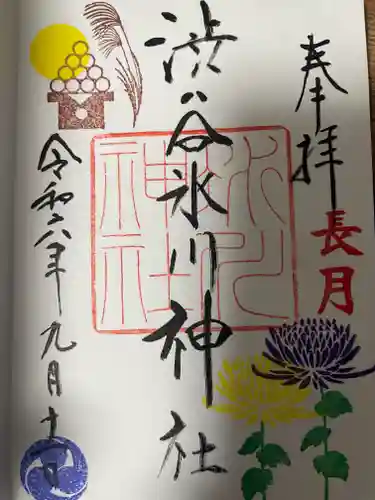 奉拝
長月
渋谷氷川神社
氷川
神社
令和六年九月十一日